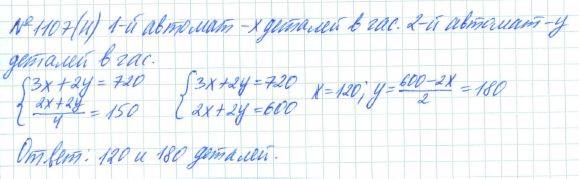 № 1107(н) 1-й автомат - x деталей в час. 2-й автомат - y
деталей в час.
{3x+2y=720 {3x+2y=720 x=120; y=(600-2x)/2=180
{(2x+2y)/4=150 {2x+2y=600
Ответ: 120 и 180 деталей.